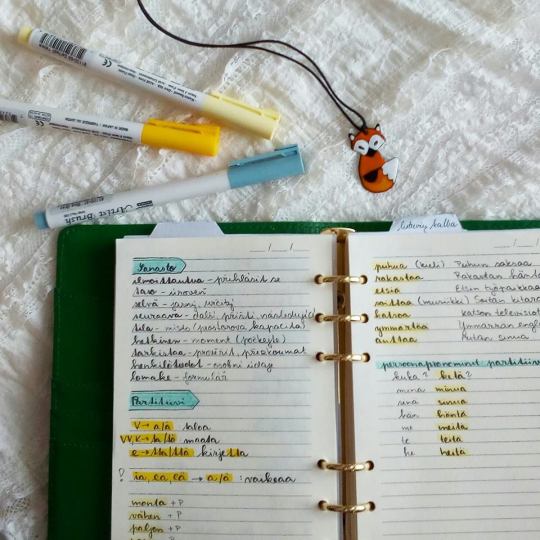 Artist Brush
lietuvių kalba
Sanasto
ilmoittautua - přihlásit se
taso - úroveň
selvä - jasný, určitý
seuraava - další, příští, následující
tila - místo (prostorová kapacita)
hetkinen - moment (počkejte)
tarkistaa - prověřit, přezkoumat
henkilötiedot - osobní údaje
lomake - formulář
Partitiivi
V → a/ä taloa
VV, K → ta/tä maata
e → tta/ttä kirjettä
! ia, ea, eä → a/ä : vaikeaa
monta + P
vähän + P
paljon + P
puhua (kieli) Puhun saksaa
rakastaa Rakastan häntä
etsiä Etsin työpaikkaa
soittaa (musiikki) Soitan kitara
katsoa Katson televisiot
ymmärtää Ymmärrän englan
auttaa Autan sinua
persoonapronominit partitiivi
kuka? ketä?
minä minua
sinä sinua
hän häntä
me meitä
te teitä
he heitä